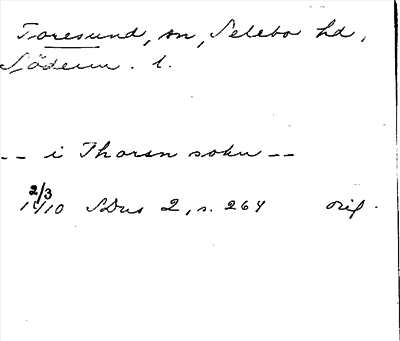 Toresund, sn, Selebo hd,
Söderm. l.
-- i Thorsn sokn --
2/3
1410 SDns 2, s. 264 orig.